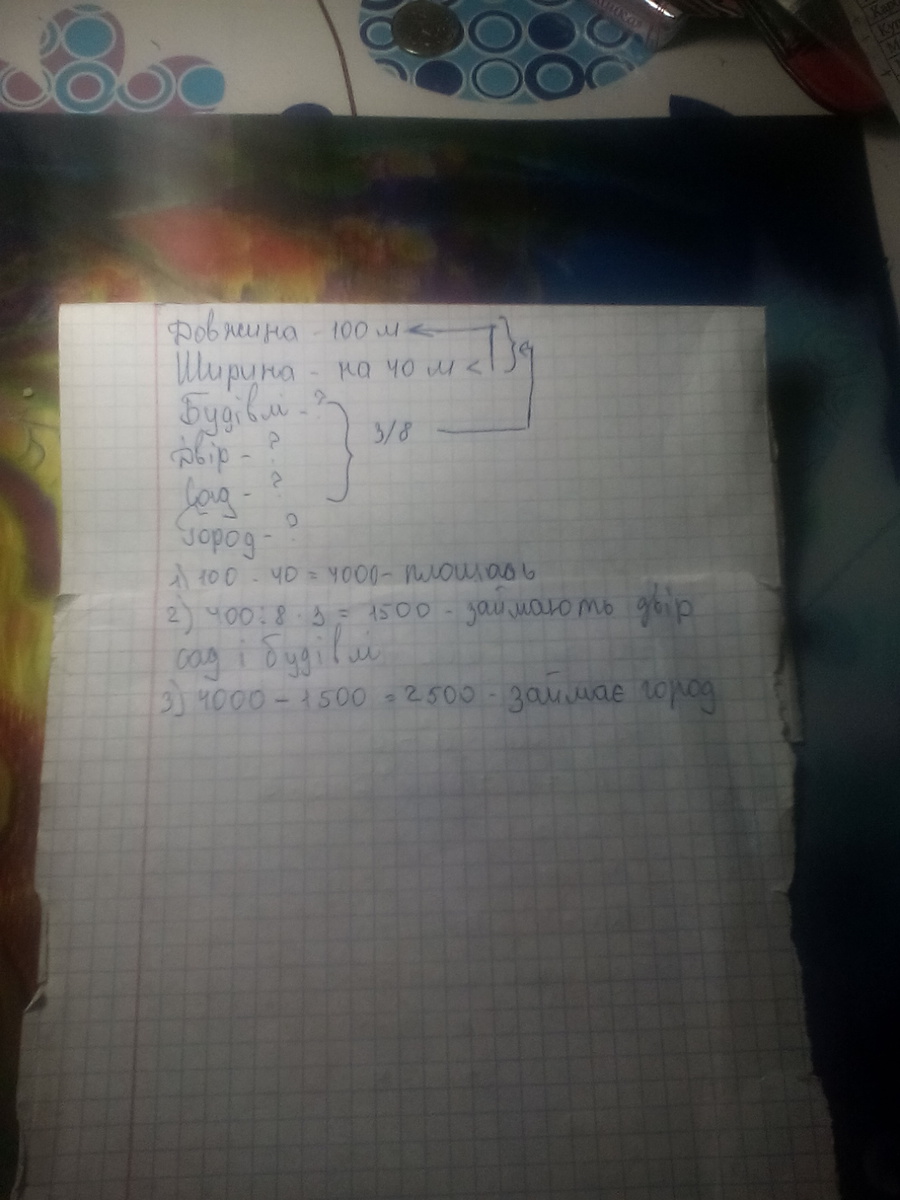 Довжина - 100 м
Ширина - на 40 м <
Будівлі - ?
Двір - ?
Сад - ?
3/8
Город - ?
1) 100 · 40 = 4000 - площадь
2) 400 : 8 · 3 = 1500 - займають двір
сад і будівлі
3) 4000 - 1500 = 2500 - займає город